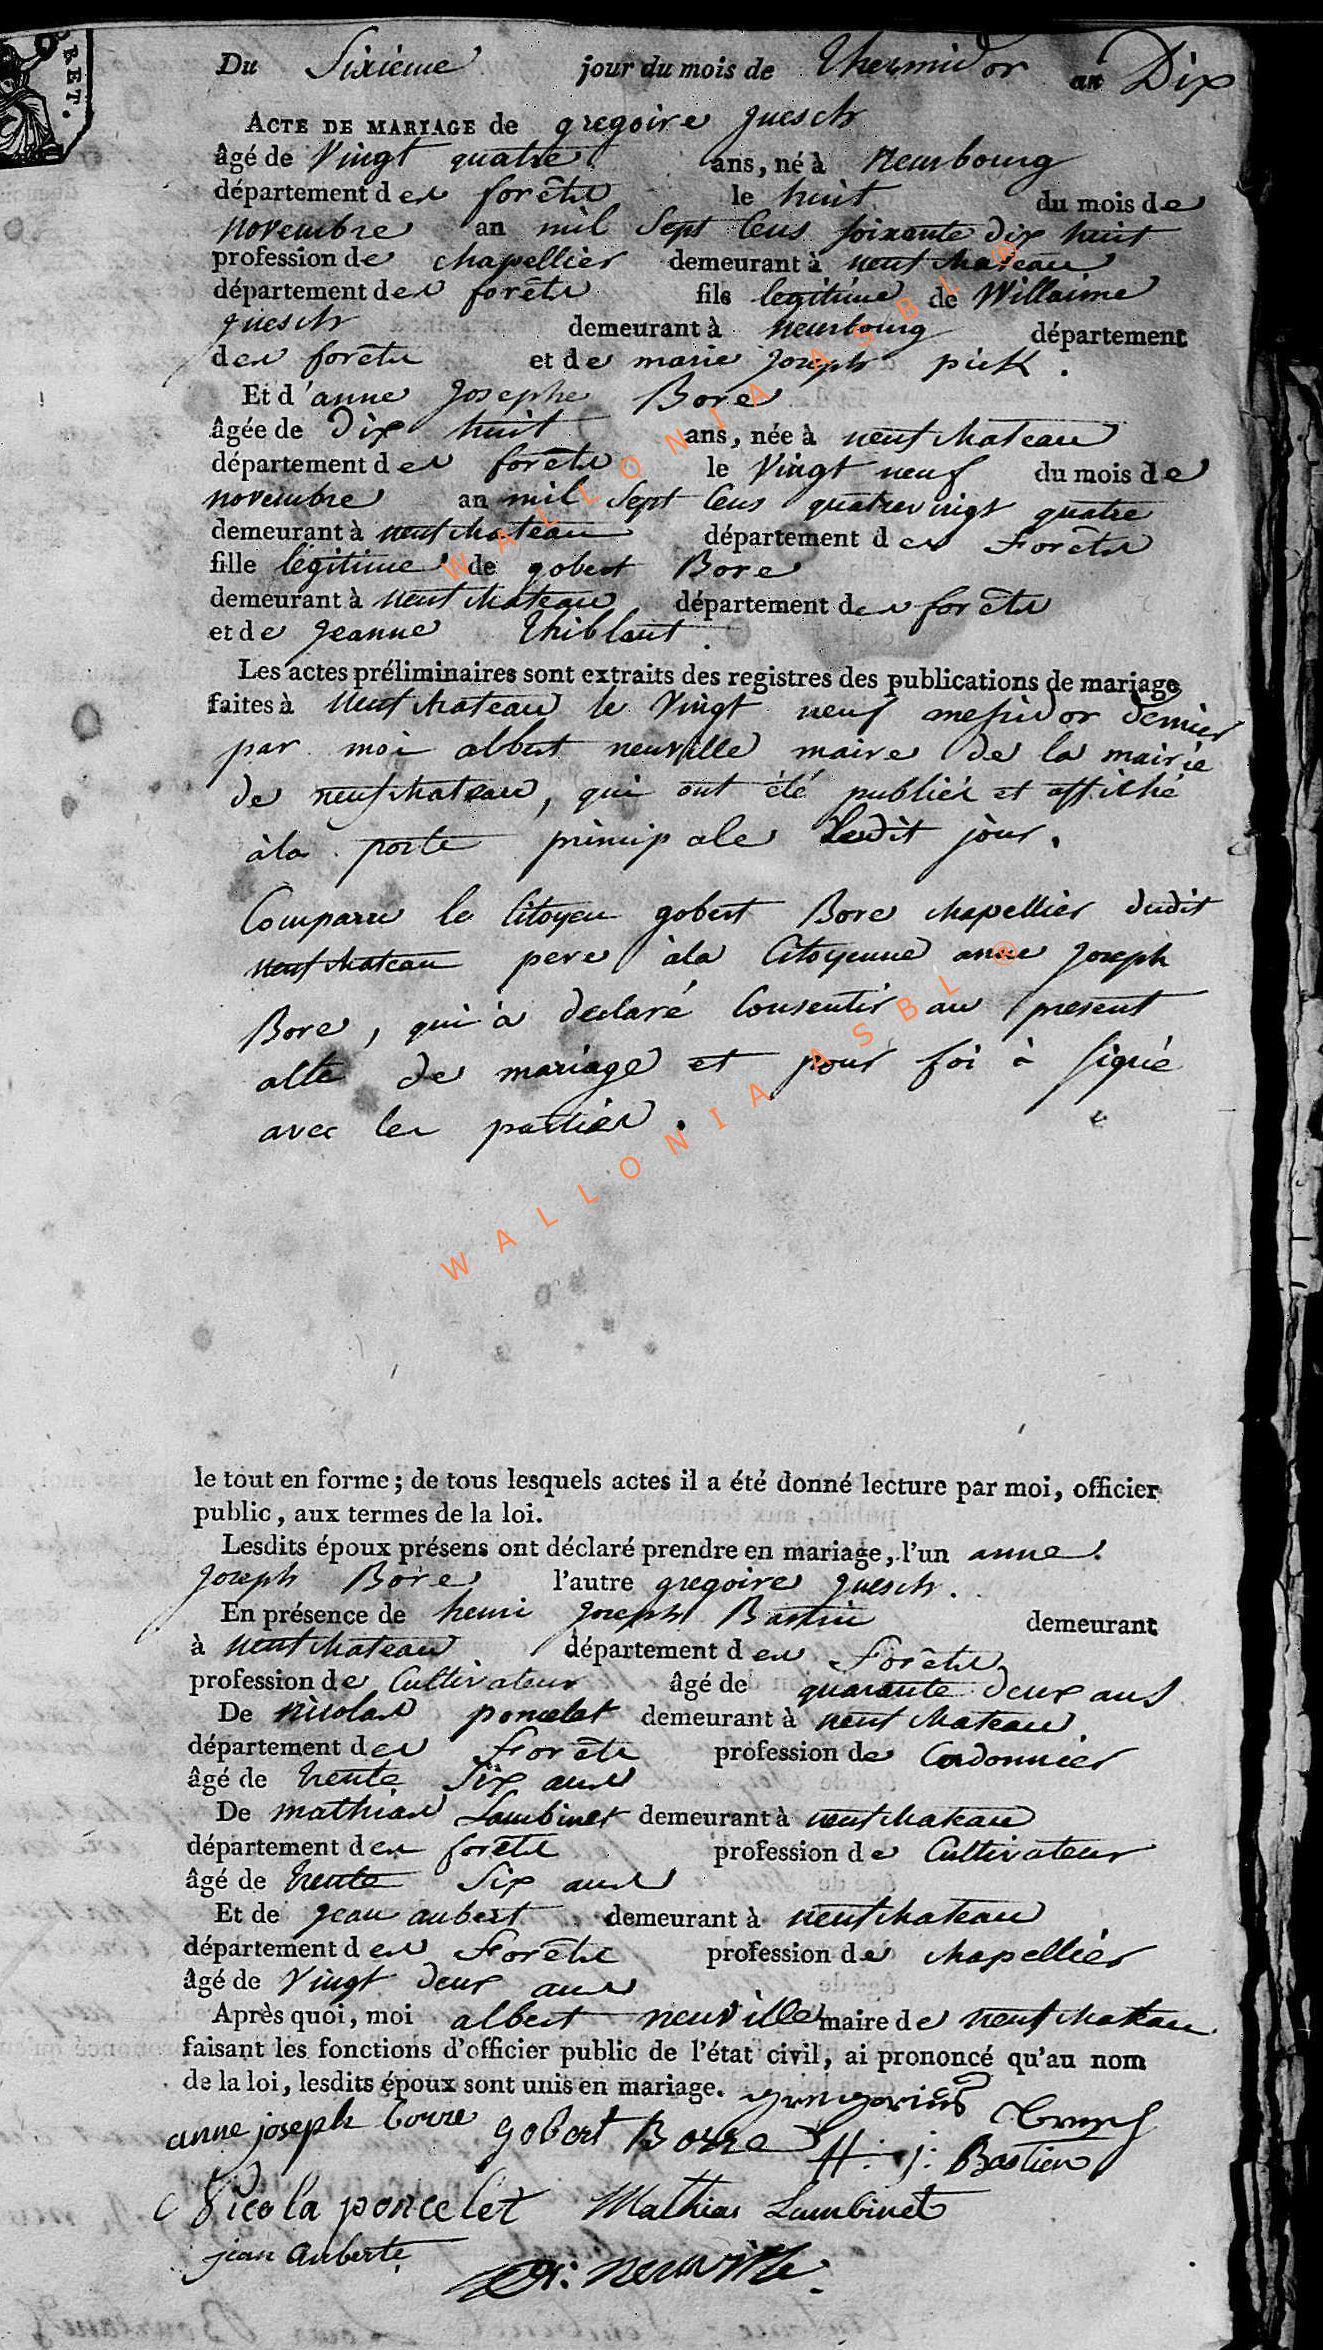 RET.
Du Sixieme jour du mois de thermidor an Dix
ACTE DE MARIAGE de gregoire guesch
âgé de Vingt quatre ans, né à neurbourg
département des forêts le huit du mois de
novembre an mil Sept Cens soixante dix huit
profession de chapellier demeurant à neufchateau
département des forêts fils legitime de Willaime
guesch demeurant à neurbourg département
des forêts et de marie Joseph pick.
Et d'anne Josephe Bore
âgée de Dix huit ans, née à neufchateau
département des forêts le Vingt neuf du mois de
novembre an mil Sept Cens quatrevingt quatre
demeurant à neufchateau département des Forêts
fille légitime de gobert Bore
demeurant à neufchateau département des forêts
et de Jeanne thiblaut.
Les actes préliminaires sont extraits des registres des publications de mariage
faites à neufchateau le Vingt neuf messidor dernier
par moi albert neuville maire de la mairie
de neufchateau, qui ont été publiés et affiché
à la porte principale ledit jour.
Comparu le Citoyen gobert Bore chapellier dudit
neufchateau pere à la Citoyenne anne Joseph
Bore, qui à declaré Consentir au present
acte de mariage et pour foi à signé
avec les parties.
le tout en forme; de tous lesquels actes il a été donné lecture par moi, officier
public, aux termes de la loi.
Lesdits époux présens ont déclaré prendre en mariage, l'un anne
Joseph Bore l'autre gregoire guesch.
En présence de henri Joseph Bastin demeurant
à neufchateau département des Forêts
profession de Cultivateur âgé de quarante deux ans
De nicolas poncelet demeurant à neufchateau
département des Forêts profession de Cordonnier
âgé de trente Six ans
De mathias Lambinet demeurant à neufchateau
département des forêts profession de Cultivateur
âgé de trente Six ans
Et de Jean aubert demeurant à neufchateau
département des Forêts profession de chapellier
âgé de Vingt deux ans
Après quoi, moi albert neuville maire de neufchateau
faisant les fonctions d'officier public de l'état civil, ai prononcé qu'au nom
de la loi, lesdits époux sont unis en mariage. gregorius
anne joseph borre gobert Borre H: j: Bastien
Nicola poncelet Mathias Lambinet
jean auberte neuville
WALLONIA ASBL ®
WALLONIA ASBL ®